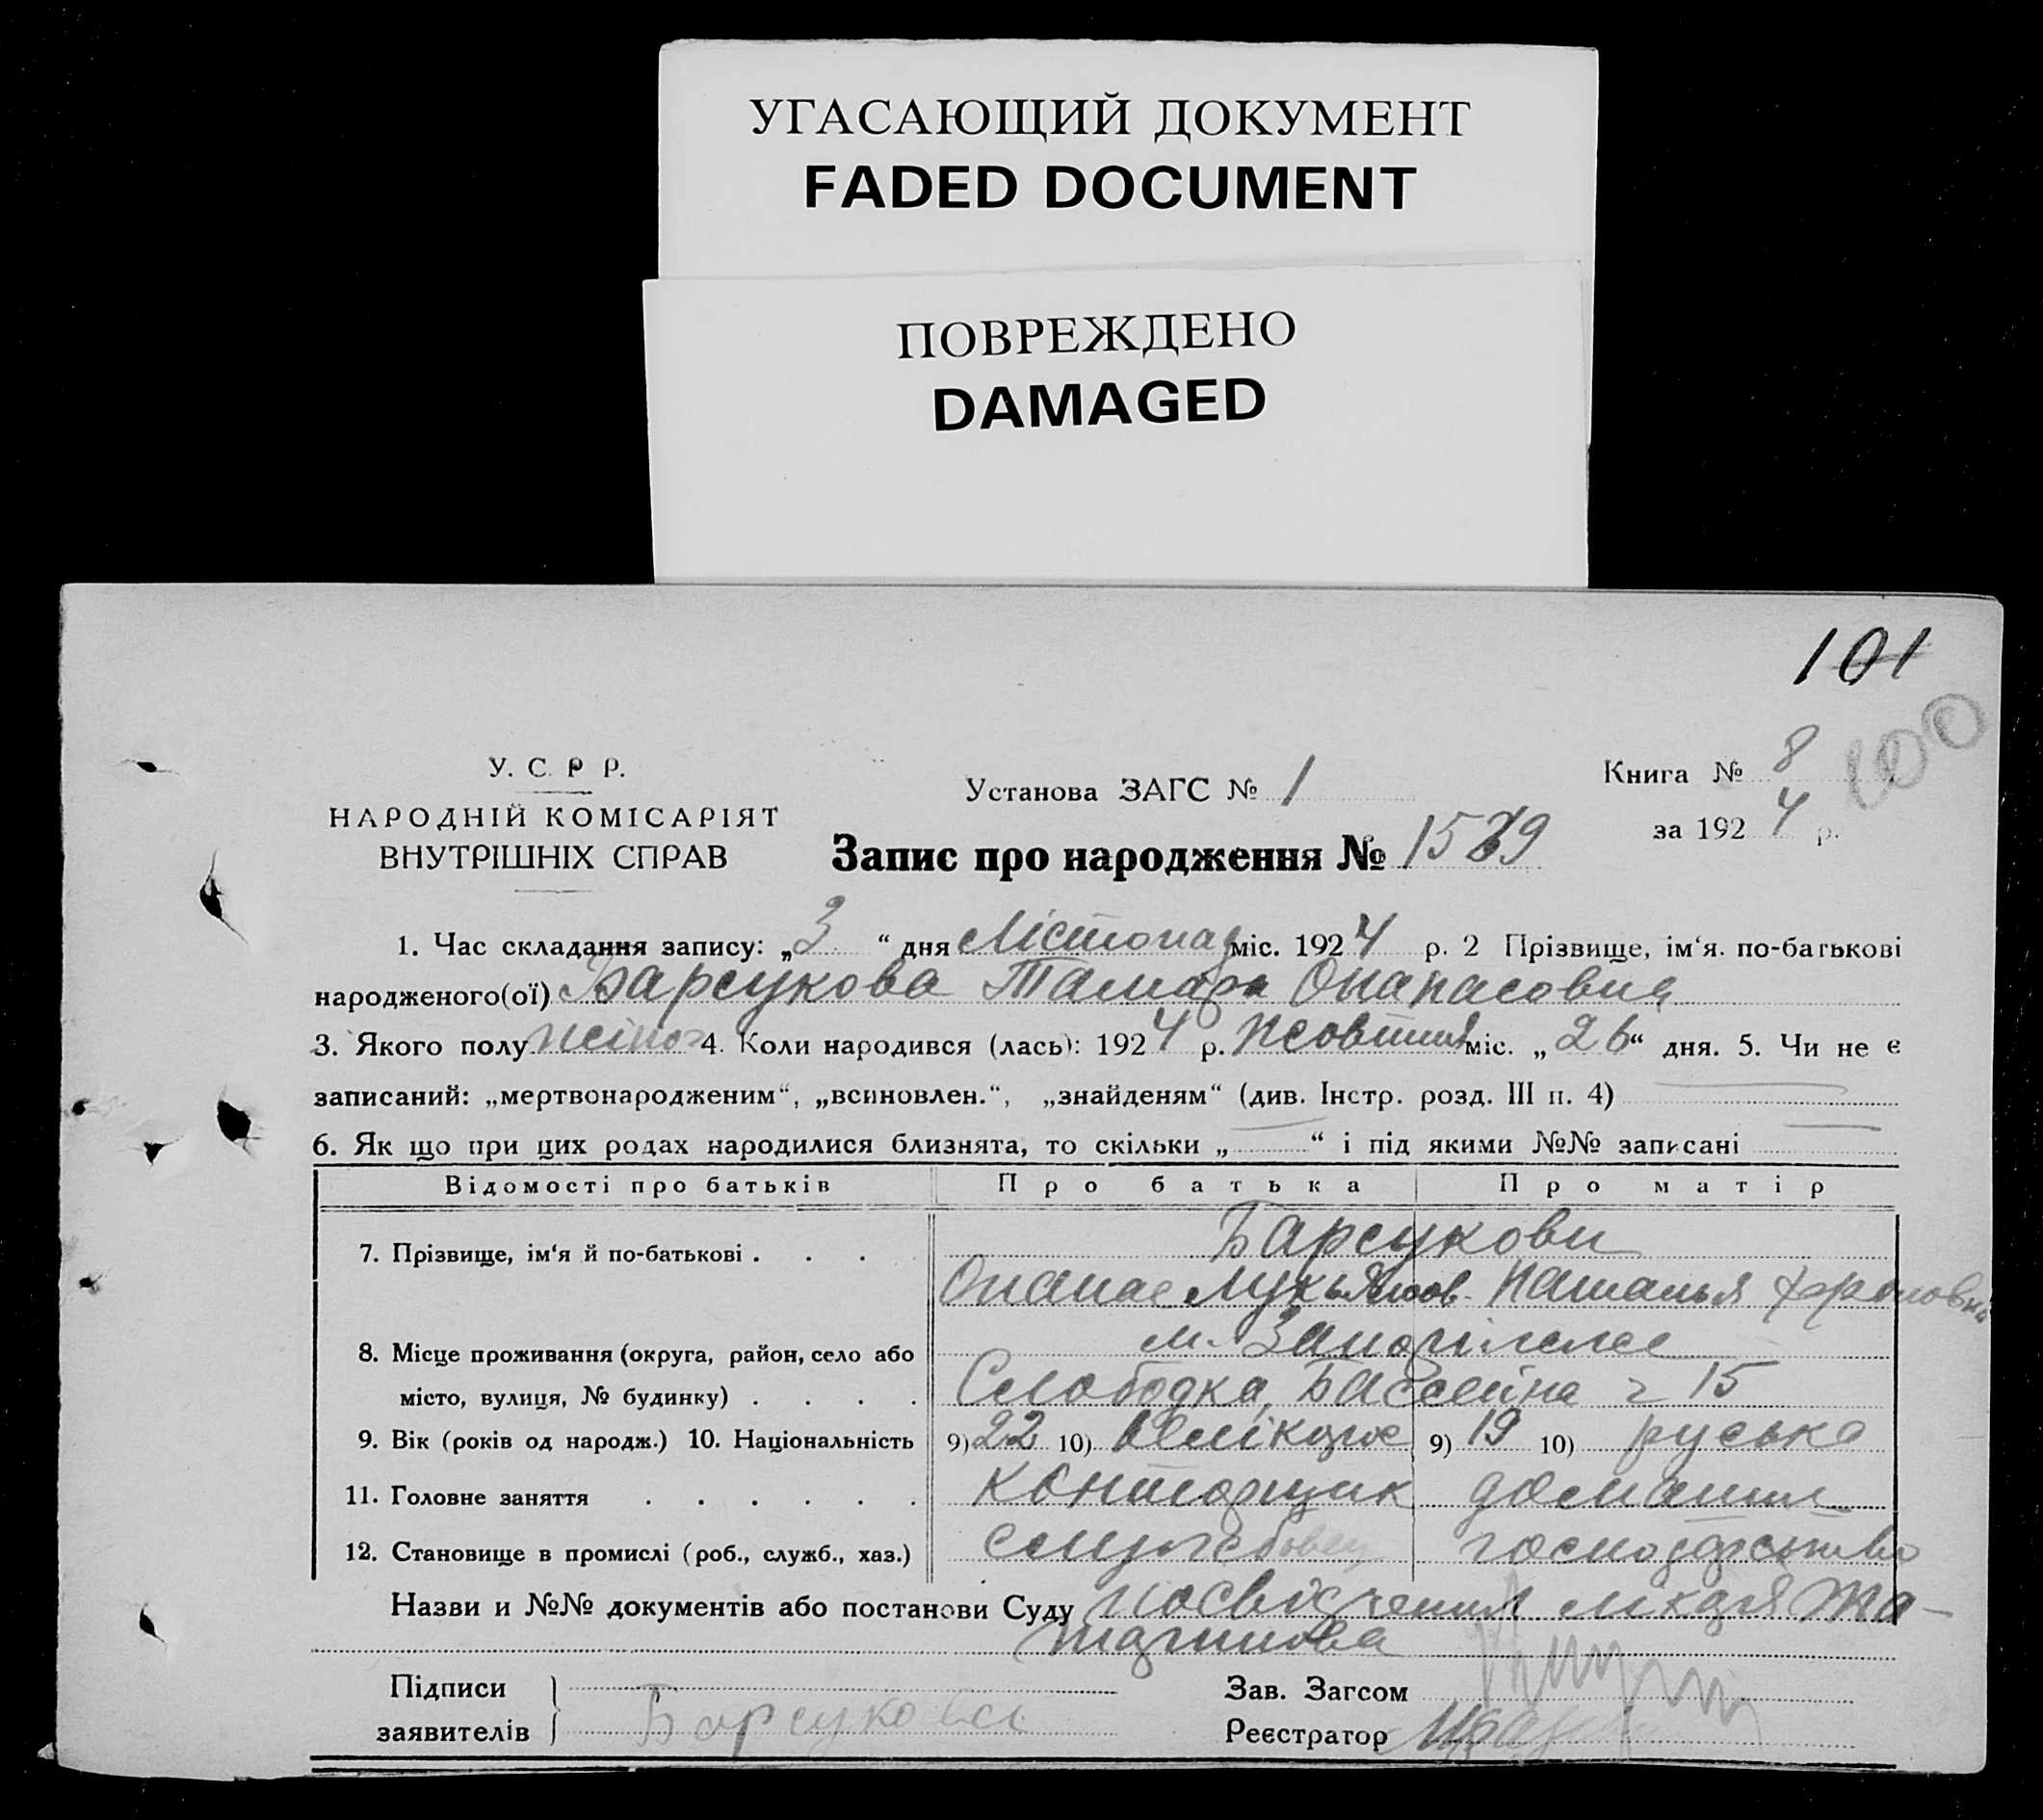 УГАСАЮЩИЙ ДОКУМЕНТ
FADED DOCUMENT
ПОВРЕЖДЕНО
DAMAGED
101
100
У. С. Р Р.
НАРОДНІЙ КОМІСАРІЯТ
ВНУТРІШНІХ СПРАВ
Установа ЗАГС № 1
Книга № 8
за 1924 р.
Запис про народження №
1. Час складання запису: „3“ дня Лістопад міс. 1924 р. 2 Прізвище, ім‘я. по-батькові
народженого(ої) Барсукова Тамара Опанасовна
3. Якого полу жіноч 4. Коли народився (лась): 1924 р. Жовтня міс. „26“ дня. 5. Чи не є
записаний: „мертвонародженим“, „всиновлен.“, „знайденям“ (див. Інстр. розд. III п. 4)
6. Як що при цих родах народилися близнята, то скільки „ “ і під якими №№ записані
Відомості про батьків Про батька Про матір
7. Прізвище, ім‘я й по-батькові . . . . Барсукови
Опанас Лукьянов. Наталья
м. Запоріжже
8. Місце проживання (округа, район, село або
місто, вулиця, № будинку) . . . . Слободка, Бассейна 15
9. Вік (років од народж.) 10. Національність 9) 22 10) 9) 19 10) руська
11. Головне заняття . . . . . . Конторщик домашнє
12. Становище в промислі (роб., служб., хаз.) службовец господарство
Назви и №№ документів або постанови Суду посвідчення лікаря
Підписи
заявителів Барсукова
Зав. Загсом
Реєстратор